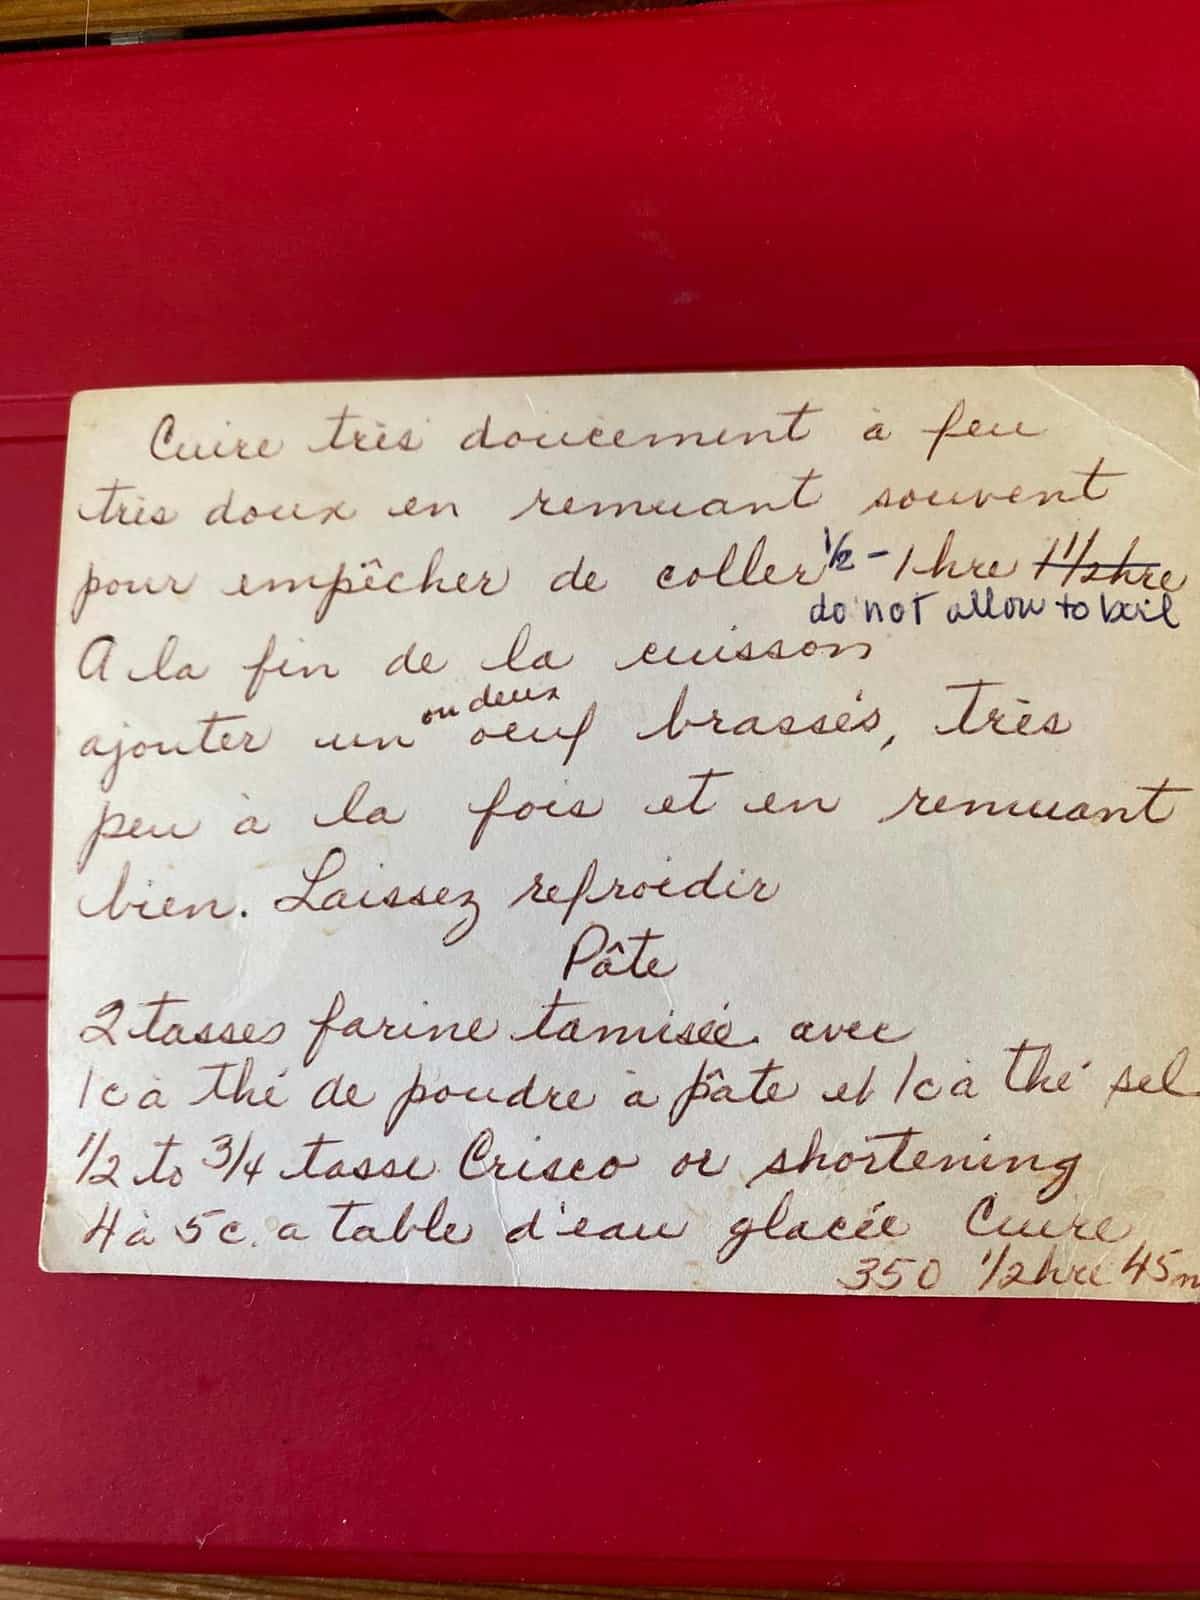 Cuire très doucement à feu
très doux en remuant souvent
pour empêcher de coller 1/2 - 1 hre 1 1/2 hre
do not allow to boil
A la fin de la cuisson
ajouter un ou deux oeuf brassés, très
peu à la fois et en remuant
bien. Laissez refroidir
Pâte
2 tasses farine tamisée avec
1 c à thé de poudre à pâte et 1 c à thé sel
1/2 to 3/4 tasse Crisco or shortening
4 à 5 c. a table d'eau glacée Cuire
350 1/2 hre 45 m